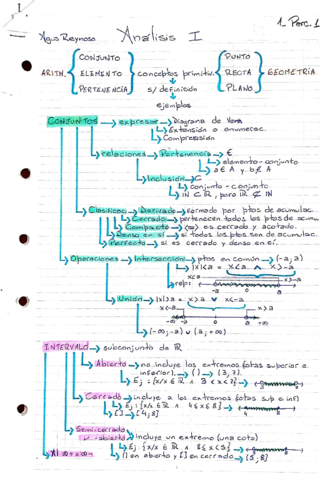 I.
1 Parc. 1
Agus Reynoso Análisis I
CONJUNTO PUNTO
ARITM. ELEMENTO conceptos primitiv. RECTA GEOMETRÍA
PERTENENCIA s/ definición PLANO
ejemplos
CONJUNTOS → expresar → Diagrama de Venn
Extensión o enumerac.
Comprensión
relaciones → Pertenencia → ∈
elemento-conjunto
a ∈ A y b ∉ A
Inclusión → ⊂
conjunto - conjunto
ℕ ⊂ ℝ, pero ℝ ⊄ ℕ
Clasificac → Derivado → formado por ptos de acumulac.
Cerrado → pertenecen todos los ptos de acumu.
Compacto → (⇔) es cerrado y acotado.
Denso en sí → si todos los ptos son de acumulac.
Perfecto → si es cerrado y denso en sí.
Operaciones → Intersección → ptos en común → (-a;a)
|x|<a = x<a ∧ x>-a
repr. -a 0 a
Unión → |x|>a = x>a ∨ x<-a
x<-a x>a
-∞ -a 0 a +∞
(-∞;-a) ∪ (a;+∞)
INTERVALO → subconjunto de ℝ
Abierto → no incluye los extremos (cotas superior e
inferior). → ( ) → (3,7).
Ej: {x/x ∈ ℝ ∧ 3 < x < 7} →
Cerrado → incluye a los extremos (cotas sup e inf)
Ej: {x/x ∈ ℝ ∧ 4 ≤ x ≤ 8} →
[ ] → [4;8] 4 8
Semi-cerrado
o -abierto → Incluye un extremo (una cota)
Ej {x/x ∈ ℝ ∧
( ) en abierto y [ ] en cerrado → (5,8]